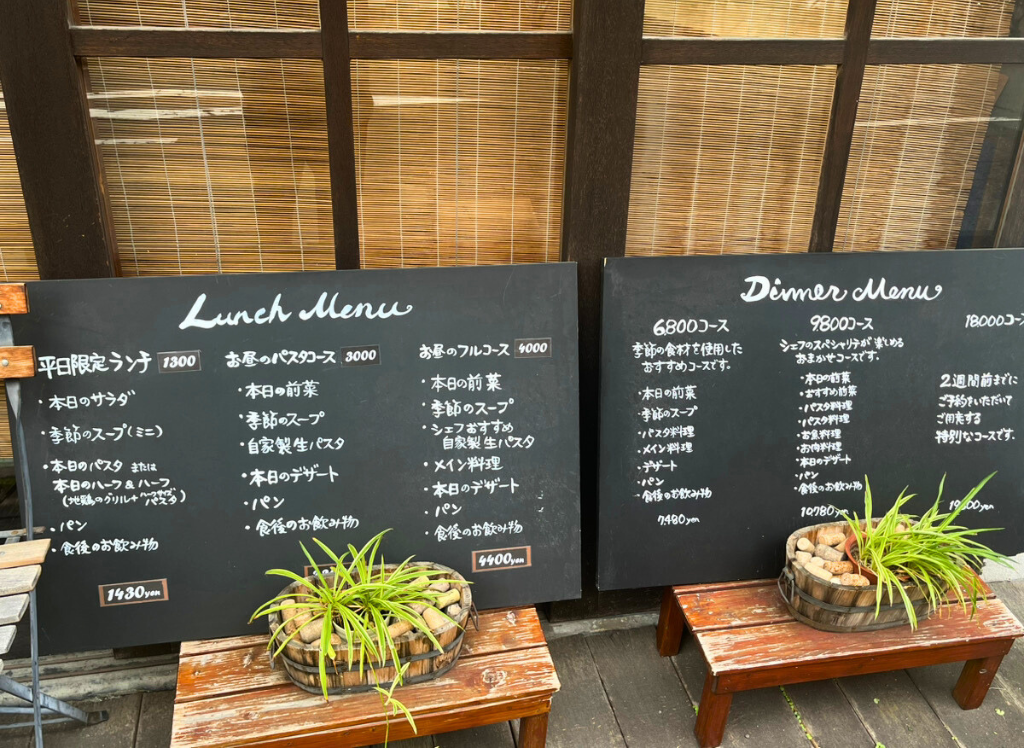 Lunch Menu
平日限定ランチ 1300
・本日のサラダ
・季節のスープ(ミニ)
・本日のパスタ または
本日のハーフ&ハーフ
(地鶏のグリル+ハーフサイズパスタ)
・パン
・食後のお飲み物
1430yen
お昼のパスタコース 3000
・本日の前菜
・季節のスープ
・自家製生パスタ
・本日のデザート
・パン
・食後のお飲み物
お昼のフルコース 4000
・本日の前菜
・季節のスープ
・シェフおすすめ
自家製生パスタ
・メイン料理
・本日のデザート
・パン
・食後のお飲み物
4400yen
Dinner Menu
6800コース
季節の食材を使用した
おすすめコースです。
・本日の前菜
・季節のスープ
・パスタ料理
・メイン料理
・デザート
・パン
・食後のお飲み物
7480yen
9800コース
シェフのスペシャリテが楽しめる
おまかせコースです。
・本日の前菜
・おすすめ前菜
・パスタ料理
・パスタ料理
・お魚料理
・お肉料理
・本日のデザート
・パン
・食後のお飲み物
10780yen
18000コース
2週間前までに
ご予約をいただいて
ご用意する
特別なコースです。